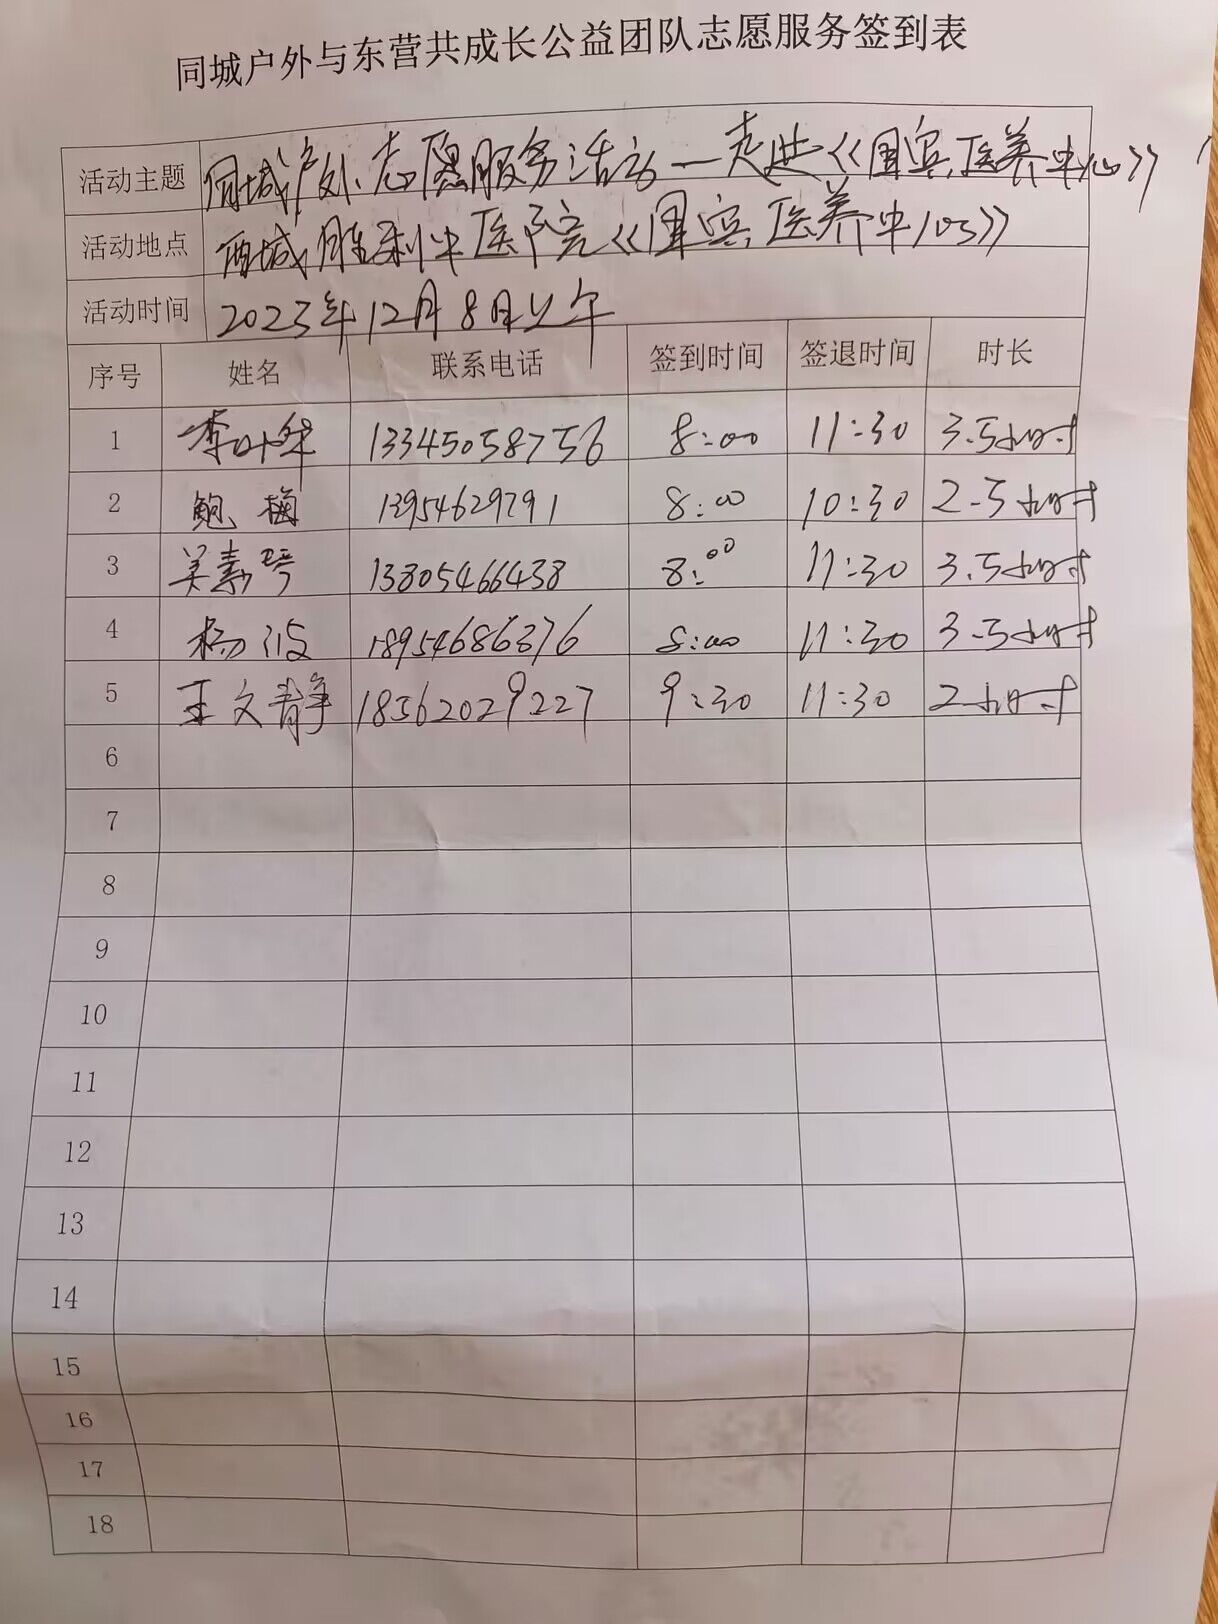 同城户外与东营共成长公益团队志愿服务签到表
活动主题 同城户外志愿服务活动—走进《国宾医养中心》
活动地点 西城胜利中医院《国宾医养中心》
活动时间 2023年12月8日上午
序号 姓名 联系电话 签到时间 签退时间 时长
1 李叶华 13345058756 8:00 11:30 3.5小时
2 鲍梅 13954629791 8:00 10:30 2.5小时
3 吴素琴 13805466438 8:00 11:30 3.5小时
4 杨波 18954686376 8:00 11:30 3.5小时
5 王文静 18562029227 9:30 11:30 2小时
6
7
8
9
10
11
12
13
14
15
16
17
18